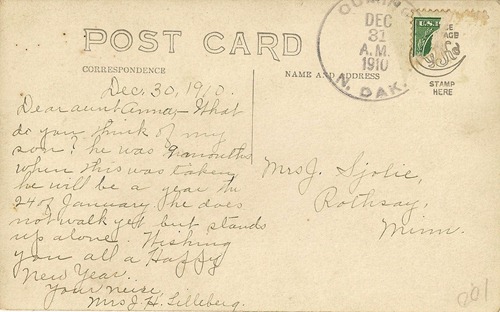 POST CARD
CORRESPONDENCE
NAME AND ADDRESS
DEC
31
A.M.
1910
N. DAK.
U.S.
STAMP
HERE
Dec. 30, 1910.
Dear aunt Anna;- What
do you think of my
son? he was 9 months
when this was taken
he will be a year the
24 of January he does
not walk yet but stands
up alone. Wishing
you all a Happy
New Year.
Your neise,
Mrs J. H. Lilleberg.
Mrs J. Sjolie,
Rothsay,
Minn.